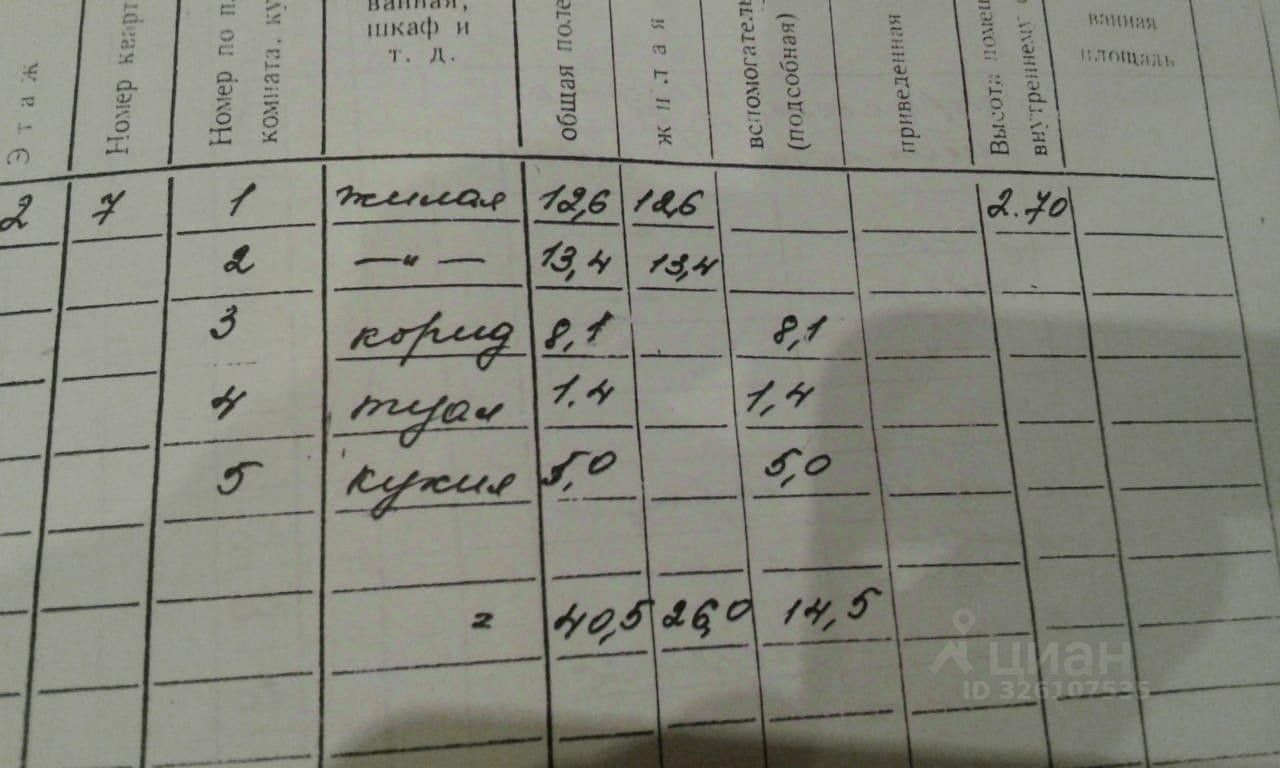 Этаж
Номер кварт
Номер по п
комната, ку
ванная,
шкаф и
т. д.
общая поле
жилая
вспомогатель
(подсобная)
приведенная
Высота помещ
внутреннему
ванная
площадь
2 7 1 жилая 12,6 12,6 2.70
2 —"— 13,4 13,4
3 корид 8,1 8,1
4 туал 1.4 1,4
5 кухня 5,0 5,0
= 40,5 26,0 14,5
циан
ID 326107535